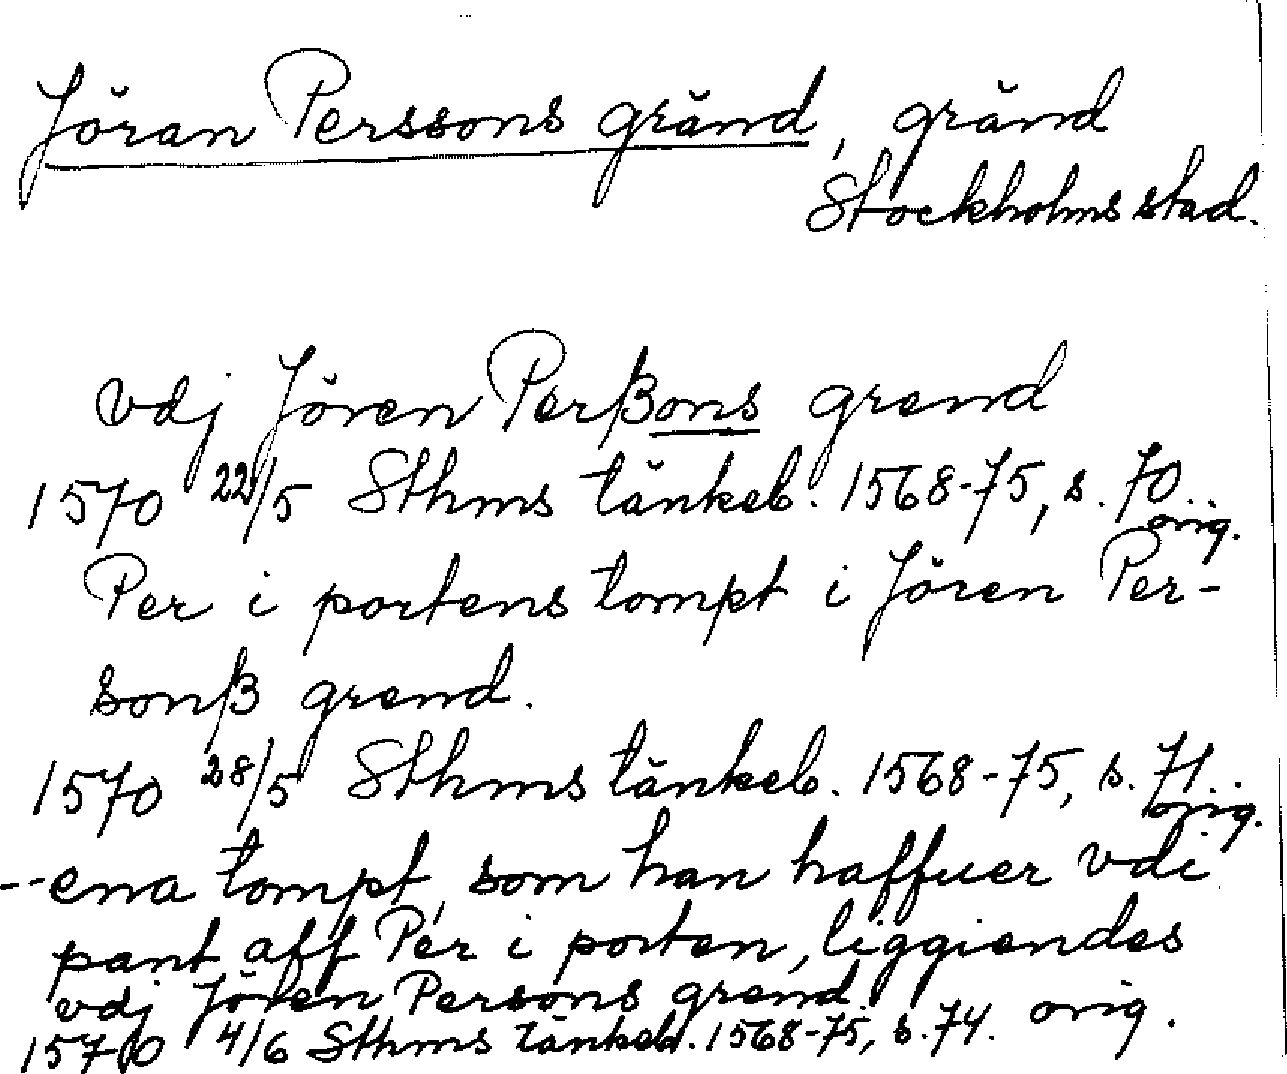 Jöran Perssons gränd, gränd
Stockholms stad.
vdj Jören Perßons grend
1570 22/5 Sthms tänkeb. 1568-75, s. 70..
orig.
Per i portens tompt i Jören Per-
sonß grend.
1570 28/5 Sthms tänkeb. 1568-75, s. 71..
orig.
--ena tompt, som han haffuer vdi
pant aff Per i porten, liggiendes
vdj Jören Persons grend.
1570 4/6 Sthms tänkeb. 1568-75, s. 74. orig.